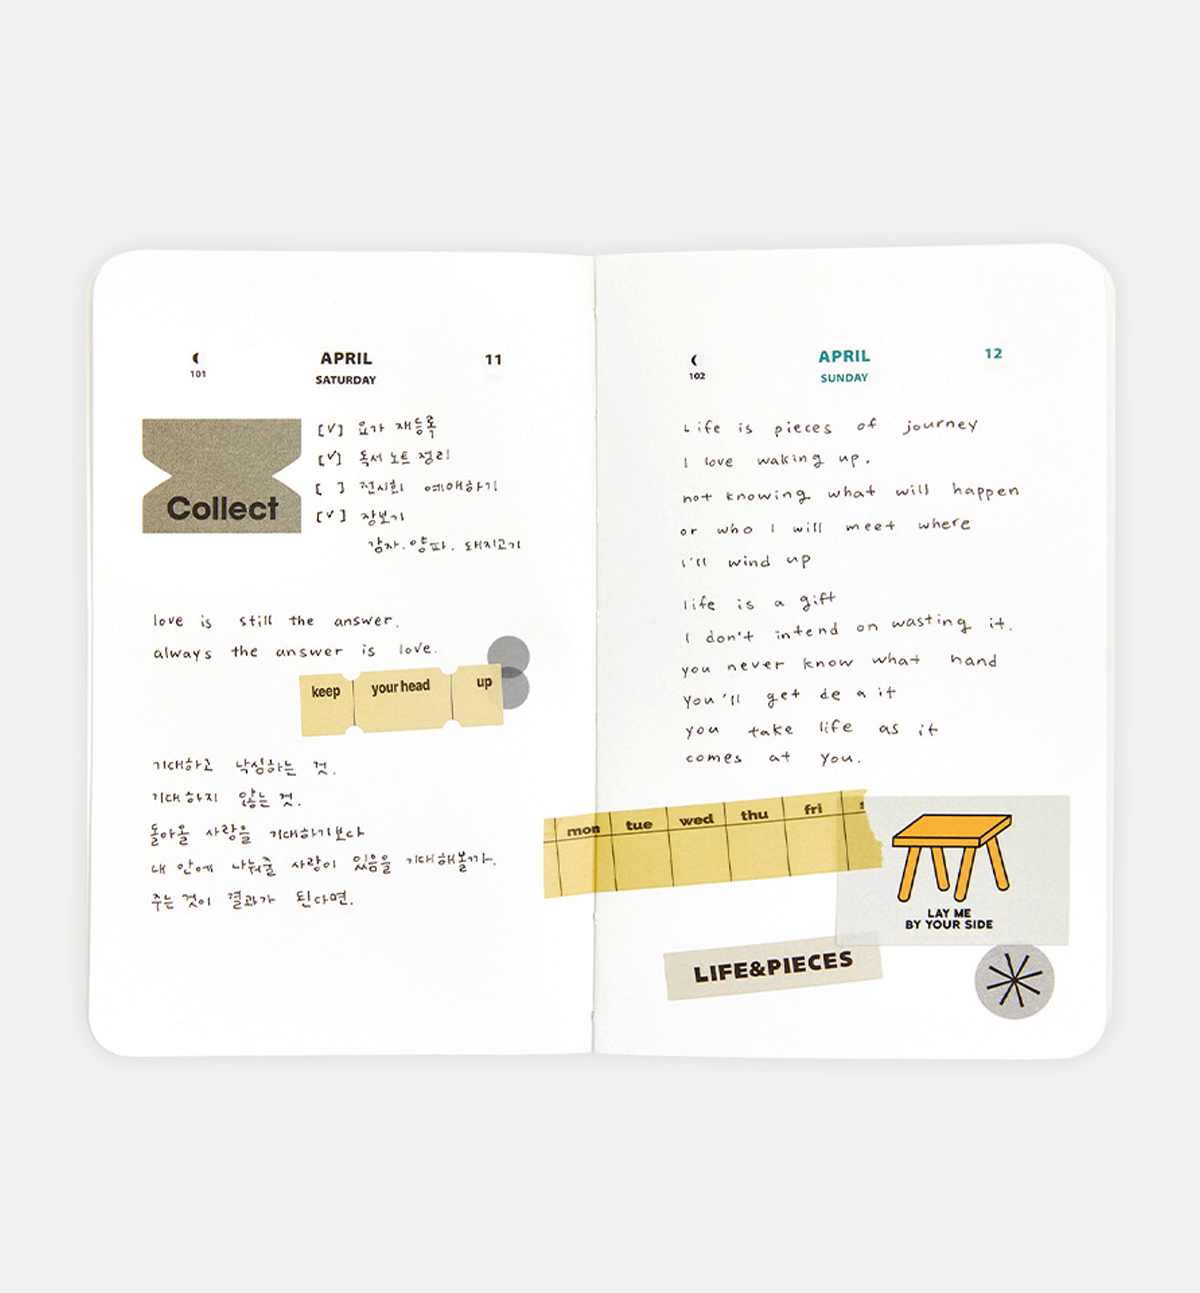 101
APRIL
SATURDAY
11
Collect
[✓] 요가 재등록
[✓] 독서 노트 정리
[ ] 전시회 예매하기
[✓] 장보기
감자. 양파. 돼지고기
love is still the answer.
always the answer is love.
keep your head up
기대하고 낙심하는 것.
기대하지 않는 것.
돌아올 사랑을 기대하기보다
내 안에 나눠줄 사랑이 있음을 기대해볼까.
주는 것이 결과가 된다면.
102
APRIL
SUNDAY
12
Life is pieces of journey
I love waking up.
not knowing what will happen
or who I will meet where
I'll wind up
life is a gift
I don't intend on wasting it.
you never know what hand
you'll get de a it
you take life as it
comes at you.
mon tue wed thu fri s
LAY ME
BY YOUR SIDE
LIFE&PIECES